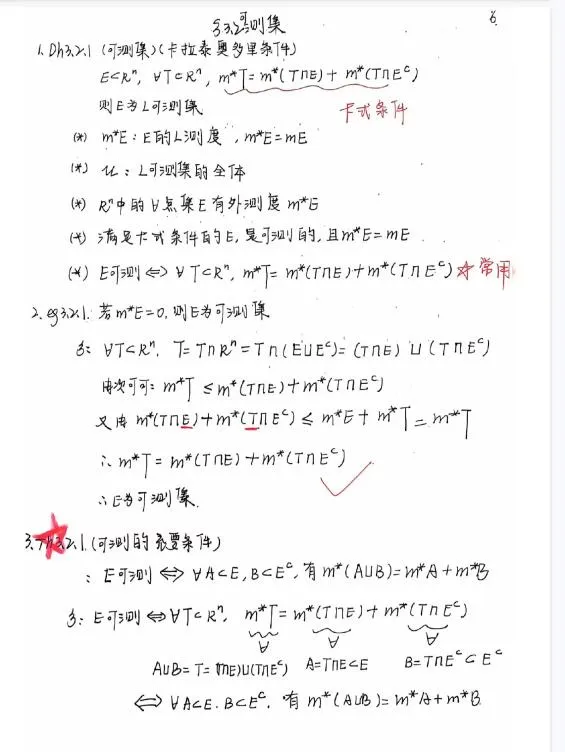 §3.2可测集
6.
1. Dh3.2.1 (可测集)(卡拉泰奥多里条件)
E⊂Rⁿ, ∀T⊂Rⁿ, m*T = m*(T∩E) + m*(T∩Eᶜ)
则E为L可测集 卡式条件
(*) m*E: E的L测度, m*E=mE
(*) 𝓊: L可测集的全体
(*) Rⁿ中的∀点集E有外测度m*E
(*) 满足卡式条件的E, 是可测的, 且m*E=mE
(*) E可测 ⇔ ∀T⊂Rⁿ, m*T = m*(T∩E) + m*(T∩Eᶜ) ☆常用
2. eg3.2.1. 若m*E=0, 则E为可测集
∀T⊂Rⁿ, T=T∩Rⁿ=T∩(E∪Eᶜ)=(T∩E)∪(T∩Eᶜ)
由次可可: m*T ≤ m*(T∩E) + m*(T∩Eᶜ)
又由 m*(T∩E) + m*(T∩Eᶜ) ≤ m*E + m*T = m*T
∴ m*T = m*(T∩E) + m*(T∩Eᶜ)
∴E为可测集.
3. Th3.2.1. (可测的充要条件)
: E可测 ⇔ ∀A⊂E, B⊂Eᶜ, 有 m*(A∪B) = m*A + m*B
E可测 ⇔ ∀T⊂Rⁿ, m*T = m*(T∩E) + m*(T∩Eᶜ)
∀ ∀ ∀
A∪B=T=(T∩E)∪(T∩Eᶜ) A=T∩E⊂E B=T∩Eᶜ⊂Eᶜ
⇔ ∀A⊂E, B⊂Eᶜ, 有 m*(A∪B) = m*A + m*B